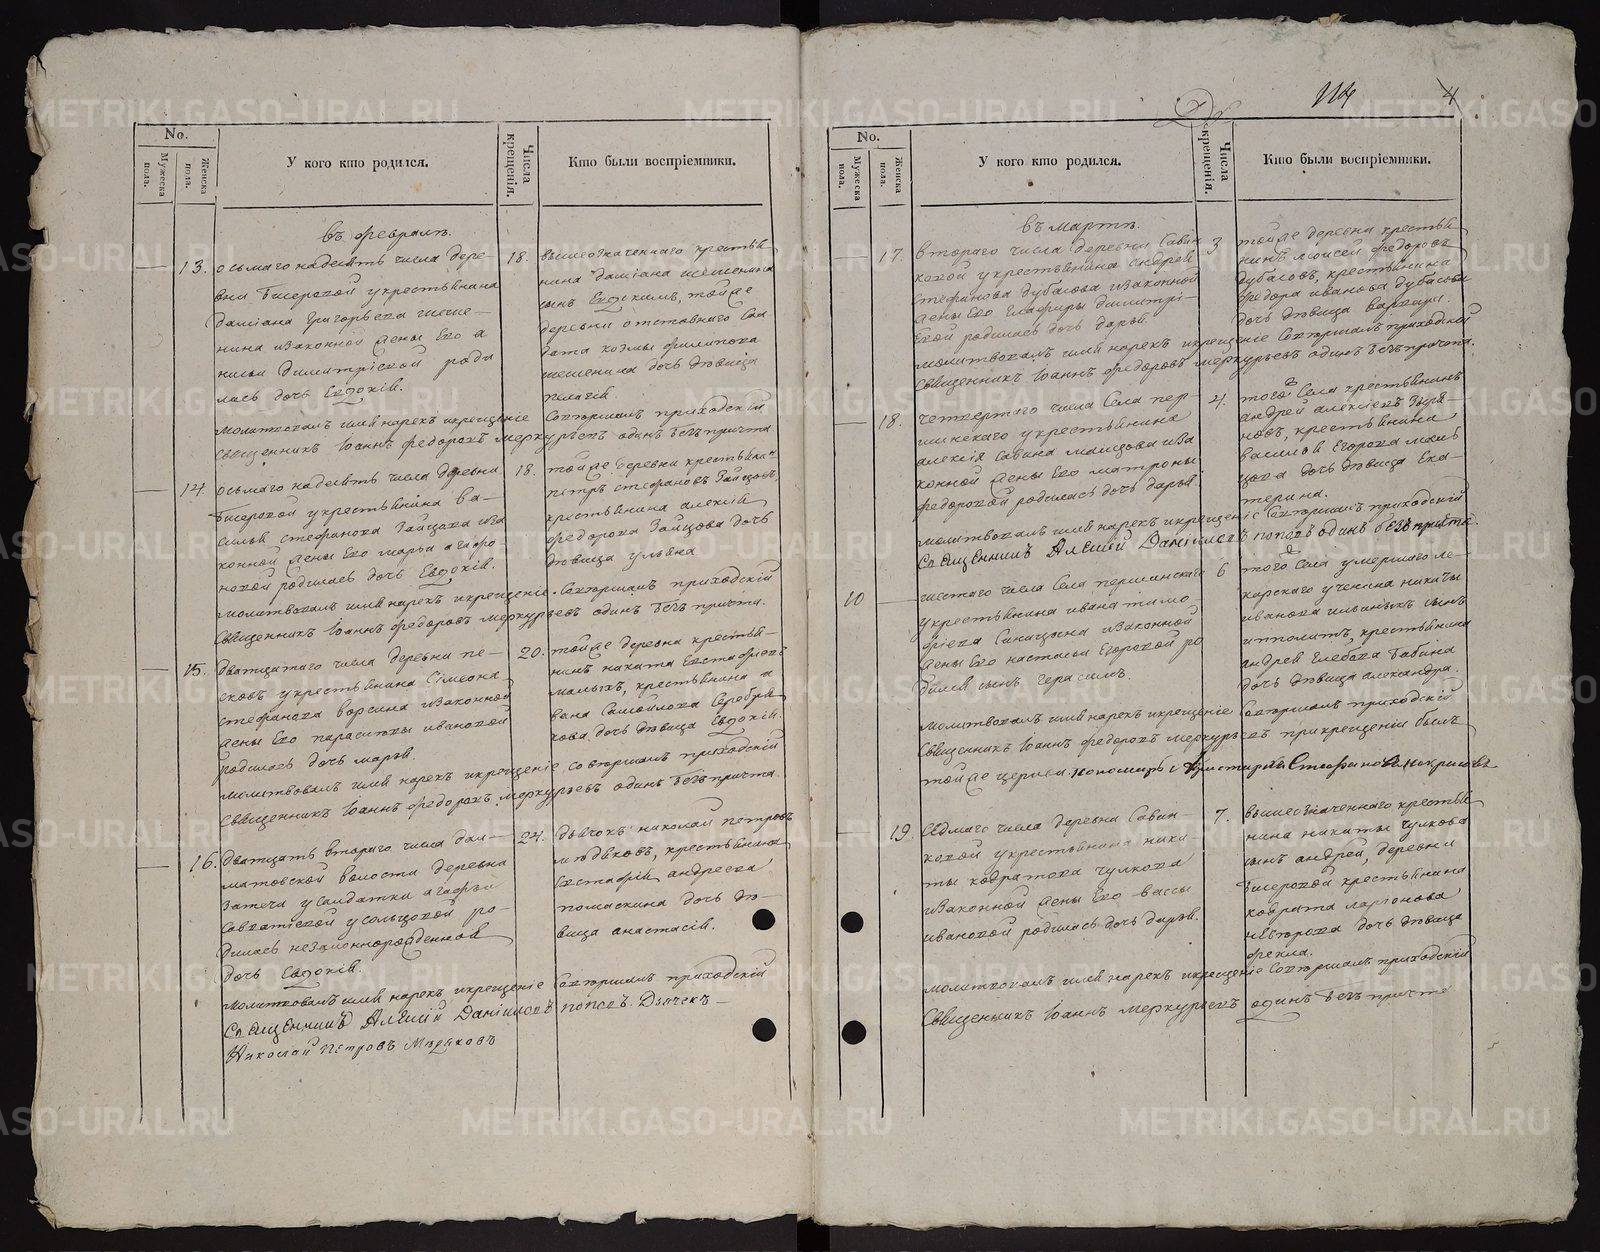 No.
Мужеска пола.
Женска пола.
У кого кто родился.
Числа крещенія.
Кто были воспріемники.
въ феврале.
13.
осьмаго надесять числа дере-
вни Бисеровой у крестьянина
Даміана Григорьева шеше-
нина изаконной жены Его а
нисьи Димитріевой роди
лась дочь Евдокія.
18.
вышеозначеннаго крестья
нина Даміана шешенина
сынъ Евдокимъ, тойже
деревни отставнаго Сол
дата козмы филипова
шешенина дочь девица
пелагія
молитвовалъ имя нарекъ икрещеніе Совершалъ приходскій
Священникъ Іоаннъ федоровъ меркурьевъ одинъ безъ причта
14.
осьмаго надесять числа деревни
Бисеровой у крестьянина Ва-
силья Стефанова Зайцова иза
конной жены Его марьи агафо-
новой родилась дочь Евдокія.
18.
тойже деревни крестьянинъ
петръ стефановъ Зайцовъ,
крестьянина алексія
федорова Зайцова дочь
девица ульяна
молитвовалъ имя нарекъ икрещеніе. Совершалъ приходскій
Священникъ Іоаннъ федоровъ меркурьевъ одинъ безъ причта.
15.
Дватцатаго числа деревни пе-
сковъ у крестьянина Симеона
стефанова ворсина изаконной
жены Его параскевы ивановой
родилась дочь марья.
20.
тойже деревни крестья-
нинъ никита Евстафіевъ
малыхъ, крестьянина и
вана Самойлова Серебря
кова дочь девица Евдокія.
молитвовалъ имя нарекъ икрещеніе совершалъ приходскій
Священникъ Іоаннъ федоровъ меркурьевъ одинъ безъ причта
16.
Дватцать втораго числа дал-
матовской волости деревни
Затеча у солдатки агафьи
Савватіевой усольцовой ро-
дилась незаконнорожденная
дочь Евдокія.
24.
дьячокъ николай петровъ
мядяковъ, крестьянина
Евстафія андреева
помаскина дочь де-
вица анастасія.
молитвовалъ имя нарекъ икрещеніе Совершалъ приходскій
Священникъ Алексій Даніиловъ поповъ. Дьячекъ
Николай Петровъ Мядяковъ
114
4
No.
Мужеска пола.
Женска пола.
У кого кто родился.
Числа крещенія.
Кто были воспріемники.
въ марте.
17.
втораго числа деревни Савин
ковой у крестьянина андрея
стефанова дубасова изаконной
жены Его Глафиры димитрі-
евой родилась дочь дарья.
3
тойже деревни крестья
нинъ моисей федоровъ
дубасовъ, крестьянина
федора иванова дубасова
дочь девица варвара.
молитвовалъ имя нарекъ икрещеніе Совершалъ приходской
Священникъ Іоаннъ федоровъ меркурьевъ одинъ безъ причта.
18.
четвертаго числа Села пер-
шинскаго у крестьянина
алексія Савина мальцова иза
конной жены Его матроны
федоровой родилась дочь дарья.
4.
того Села крестьянинъ
андрей алексіевъ Зыря-
новъ, крестьянина
василья Егорова маль
цова дочь девица Ека-
терина.
молитвовалъ имя нарекъ икрещеніе Совершалъ приходскій
Священникъ Алексій Даніиловъ поповъ одинъ безъ причта.
10
шестаго числа Села першинскаго
у крестьянина ивана тимо-
фіева Синицына изаконной
жены Его настасьи Егоровой ро
дился сынъ Герасимъ.
6
того Села умершаго ле-
карскаго ученика никиты
иванова ильиныхъ сынъ
ипполитъ, крестьянина
андрея Глебова бабина
дочь девица александра.
молитвовалъ имя нарекъ икрещеніе Совершалъ приходскій
Священникъ Іоаннъ федоровъ меркурьевъ прикрещеніи былъ
тойже церкви пономарь Аристархъ Стефановъ некрасовъ
19.
Седмаго числа деревни Савин-
ковой у крестьянина ники-
ты кодратова чулкова
изаконной жены Его вассы
ивановой родилась дочь дарья.
7.
вышеозначеннаго крестья
нина никиты чулкова
сынъ андрей, деревни
Бисеровой крестьянина
кодрата ларіонова
невторова дочь девица
фекла.
молитвовалъ имя нарекъ икрещеніе Совершалъ приходскій
Священникъ Іоаннъ меркурьевъ одинъ безъ причта